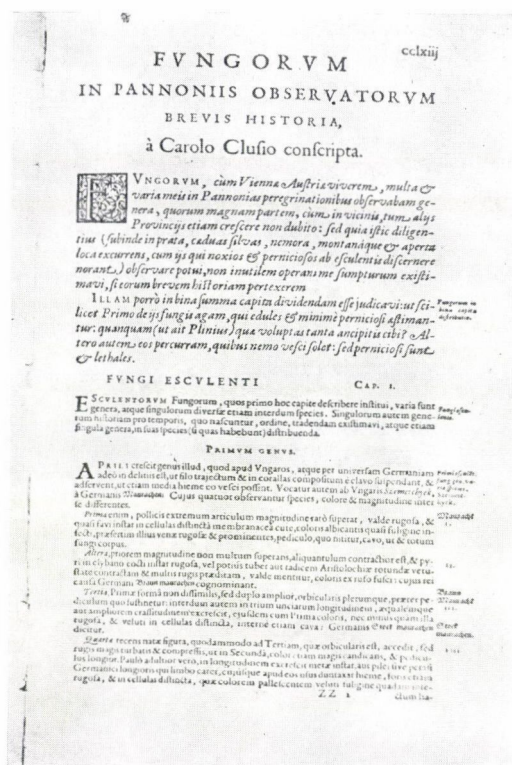 cclxiij
FVNGORVM
IN PANNONIIS OBSERVATORVM
BREVIS HISTORIA,
à Carolo Clusio conscripta.
FVNGORVM, cùm Viennæ Austriæ viverem, multa &
varia meis in Pannonias peregrinationibus observabam ge-
nera, quorum magnam partem, cùm in vicinis, tum alijs
Provincijs etiam crescere non dubito: sed quia istic diligen-
tius (subinde in prata, cæduas silvas, nemora, montanáque & aperta
loca excurrens, cum ijs qui noxios & perniciosos ab esculentis discernere
norant) observare potui, non inutilem operam me sumpturum existi-
mavi, si eorum brevem historiam pertexerem.
ILLAM porrò in bina summa capita dividendam esse judicavi: ut sci-
licet Primo de ijs fungis agam, qui edules & minimè perniciosi æstiman-
tur: quanquam (ut ait Plinius) quæ voluptas tanta ancipitis cibi? Al-
tero autem eos percurram, quibus nemo vesci solet: sed perniciosi sunt
& lethales.
Fungorum in
bina capita
FVNGI ESCVLENTI CAP. I.
ESCVLENTORVM Fungorum, quos primo hoc capite describere institui, varia sunt
genera, atque singulorum diversæ etiam interdum species. Singulorum autem gene-
rum historiam pro temporis, quo nascuntur, ordine, tradendam existimavi, atque etiam
singula genera, in suas species (si quas habebunt) distribuenda.
PRIMVM GENVS.
APRILI crescit genus illud, quod apud Vngaros, atque per universam Germaniam
adeò in delitiis est, ut filo trajectum & in corallas compositum è clavo suspendant, &
adservent, ut etiam media hieme eo vesci possint. Vocatur autem ab Vngaris
à Germanis Cujus quatuor observantur species, colore & magnitudine inter
se differentes.
Prima enim, pollicis extremum articulum magnitudine rarò superat, valdè rugosa, &
quasi favi instar in cellulas distincta membranacea cute, coloris albicantis quasi fuligine in-
fecti, præsertim illius venæ rugosæ & prominentes, pediculo, quo nititur, cavo, ut & totum
fungi corpus.
Altera, priorem magnitudine non multum superans, aliquantulum contractior est, & py-
ri in clybano cocti instar rugosa, vel potiùs tuber aut radicem Aristolochiæ rotundæ vetu-
state contractam & multis rugis præditam, valdè mentitur, coloris ex rufo fusci: cujus rei
causa Germani cognominant.
Tertia, Primæ formâ non dissimilis, sed duplo amplior, orbicularis plerumque, præter pe-
diculum quo sustinetur: interdum autem in trium unciarum longitudinem, æqualemque
aut ampliorem crassitudinem excrescit, ejusdem cum Prima coloris, nec minus quàm illa
rugosa, & veluti in cellulas distincta, internè etiam cava: Germanis
dicitur.
Quarta recens nata figura, quodammodo ad Tertiam, quæ orbicularis est, accedit, sed
rugis magis turbatis & compressis, ut in Secunda, colore tam magis candicans, & pedicu-
lus longior. Paulò adultior verò, in longitudinem excrescit metæ instar, aut pilei
Germanici longioris qui limbo caret, cujusque apud eos usus durat hieme, foris etiam
rugosa, & in cellulas distincta, quæ colorem pallescentem veluti fuligine quadam
ZZ 2 ctum ha-